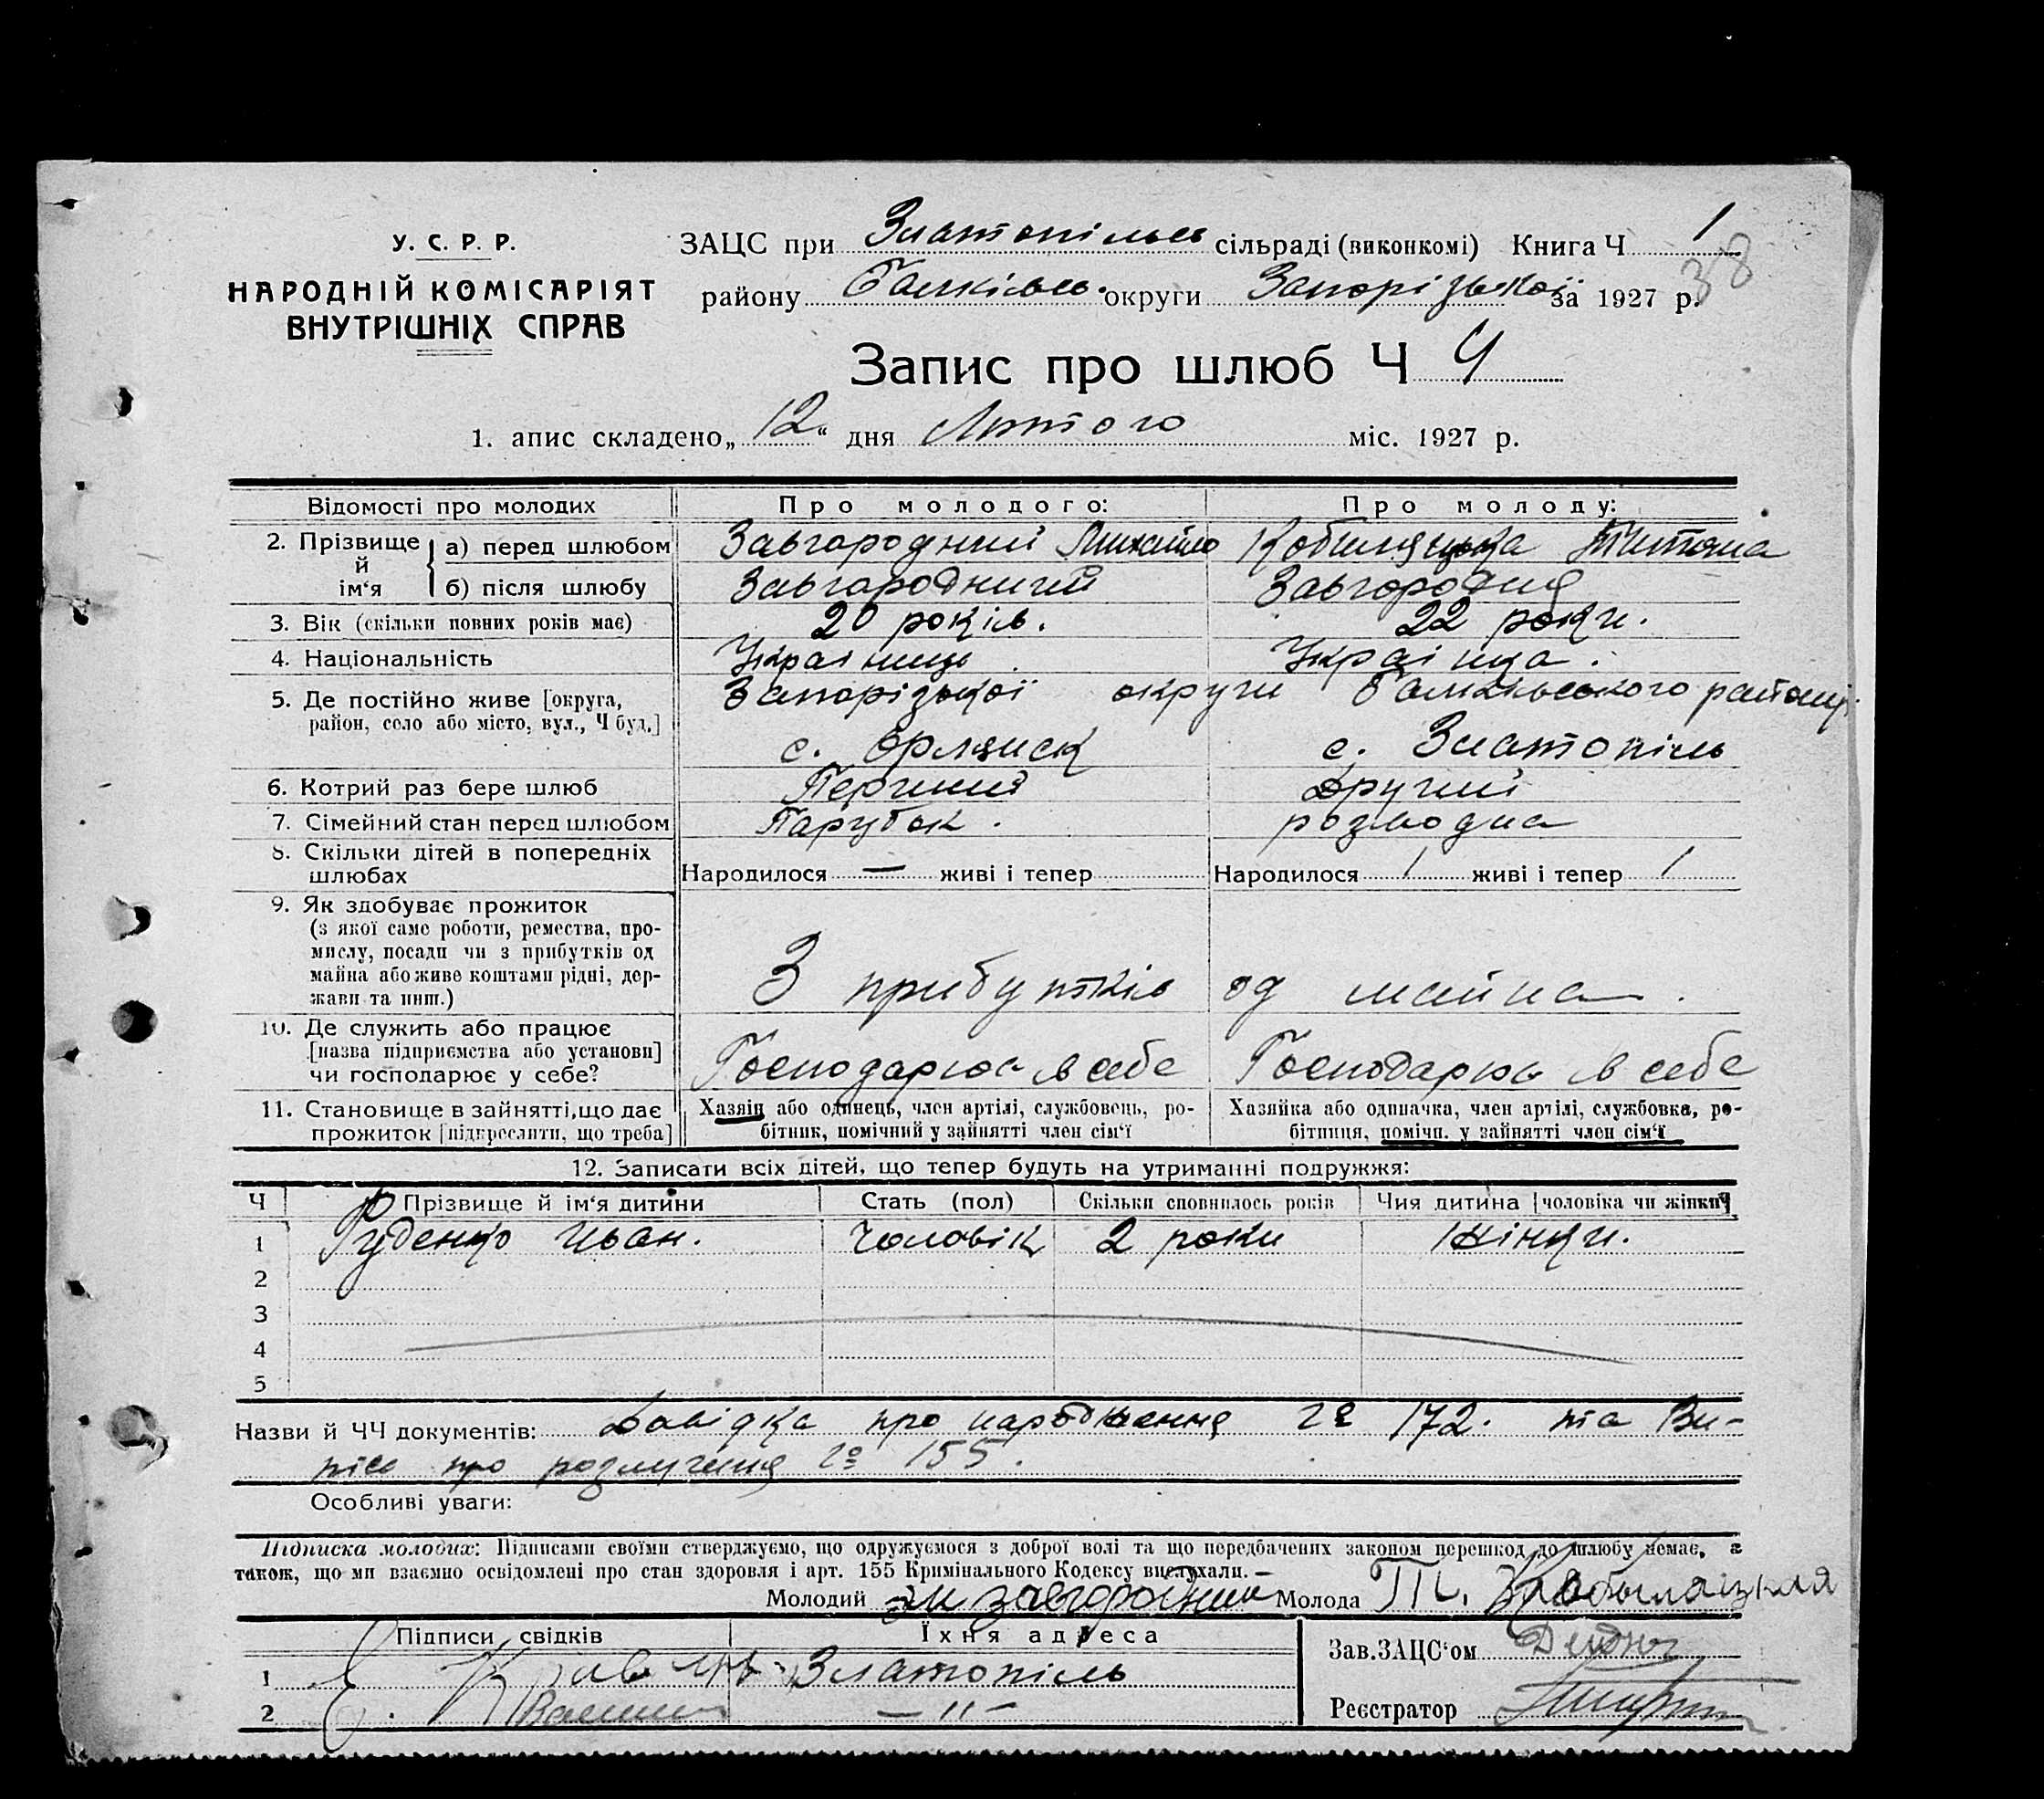 У. С. Р. Р.
НАРОДНІЙ КОМІСАРІЯТ
ВНУТРІШНІХ СПРАВ
ЗАЦС при Златопільсь сільраді (виконкомі) Книга Ч 1
38
району Балківсь. округи Запорізької за 1927 р.
Запис про шлюб Ч 4
1. апис складено „12“ дня Лютого міс. 1927 р.
Відомості про молодих Про молодого: Про молоду:
2. Прізвище й ім‘я а) перед шлюбом Завгородний Михайло Кобиляцька Титяна
б) після шлюбу Завгородничий Завгородня
3. Вік (скільки повних років має) 20 років. 22 роки.
4. Національність Українець Українка.
5. Де постійно живе [округа, Запорізької округи Балківського району
район, село або місто, вул., Ч буд.]
с. Орлянск с. Златопіль
6. Котрий раз бере шлюб Перший Другий
7. Сімейний стан перед шлюбом Парубок. розводна
8. Скільки дітей в попередніх
шлюбах Народилося — живі і тепер Народилося 1 живі і тепер 1
9. Як здобуває прожиток
(з якої саме роботи, ремества, про-
мислу, посади чи з прибутків од
майна або живе коштами рідні, дер-
жави та инш.) З прибутків од майна.
10. Де служить або працює
[назва підприємства або установи]
чи господарює у себе? Господарює в себе Господарює в себе
11. Становище в зайнятті, що дає Хазяїн або одинець, член артілі, службовець, ро- Хазяйка або одиначка, член артілі, службовка, ро-
прожиток [підкреслити, що треба] бітник, помічний у зайнятті член сім‘ї бітниця, помічн. у зайнятті член сім‘ї
12. Записати всіх дітей, що тепер будуть на утриманні подружжя:
Ч Прізвище й ім‘я дитини Стать (пол) Скільки сповнилось років Чия дитина [чоловіка чи жінки]
1 Руденко Иван. Чоловік 2 роки Жінки.
2
3
4
5
Назви й ЧЧ документів: Довідка про народження № 172. та Ви-
піс про розлучення № 155.
Особливі уваги:
Підписка молодих: Підписами своїми стверджуємо, що одружуємося з доброї волі та що передбачених законом перешкод до шлюбу немає, а
також, що ми взаємно освідомлені про стан здоровля і арт. 155 Кримінального Кодексу вислухали.—
Молодий М Завгородний Молода Т. Кобыляцкая
Підписи свідків Їхня адреса
Зав.ЗАЦС‘ом
1 Златопіль
2 — " —
Реєстратор